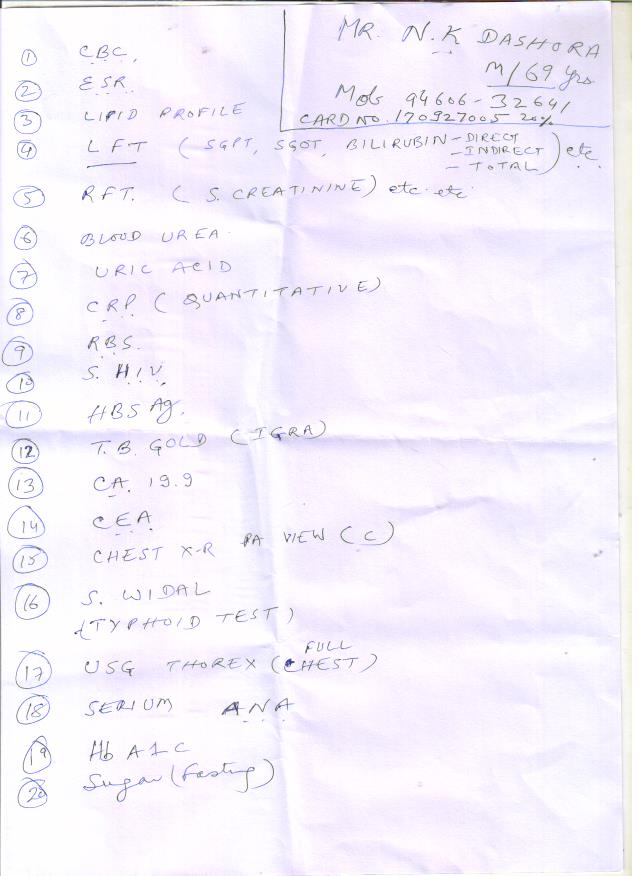 MR. N.K DASHORA
M/69 yrs
Mob 94606-32641
CARD NO. 170927005 20%
① CBC,
② ESR
③ LIPID PROFILE
④ LFT ( SGPT, SGOT, BILIRUBIN - DIRECT
- INDIRECT
- TOTAL ) etc.
⑤ RFT. ( S. CREATININE) etc. etc.
⑥ BLOOD UREA.
⑦ URIC ACID
⑧ CRP ( QUANTITATIVE)
⑨ RBS.
⑩ S. HIV,
⑪ HBS Ag.
⑫ T.B. GOLD (IGRA)
⑬ CA. 19.9
⑭ CEA
⑮ CHEST X-R PA VIEW ( C )
⑯ S. WIDAL
(TYPHOID TEST)
⑰ USG THOREX (FULL CHEST)
⑱ SERIUM ANA
⑲ Hb A1C
⑳ Sugar (Fasting)